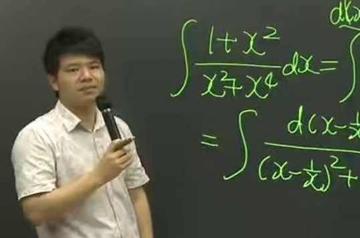 ∫ (1+x²)/(x²+x⁴) dx = ∫ d(x
= ∫ d(x-1/x)/((x-1/x)²+